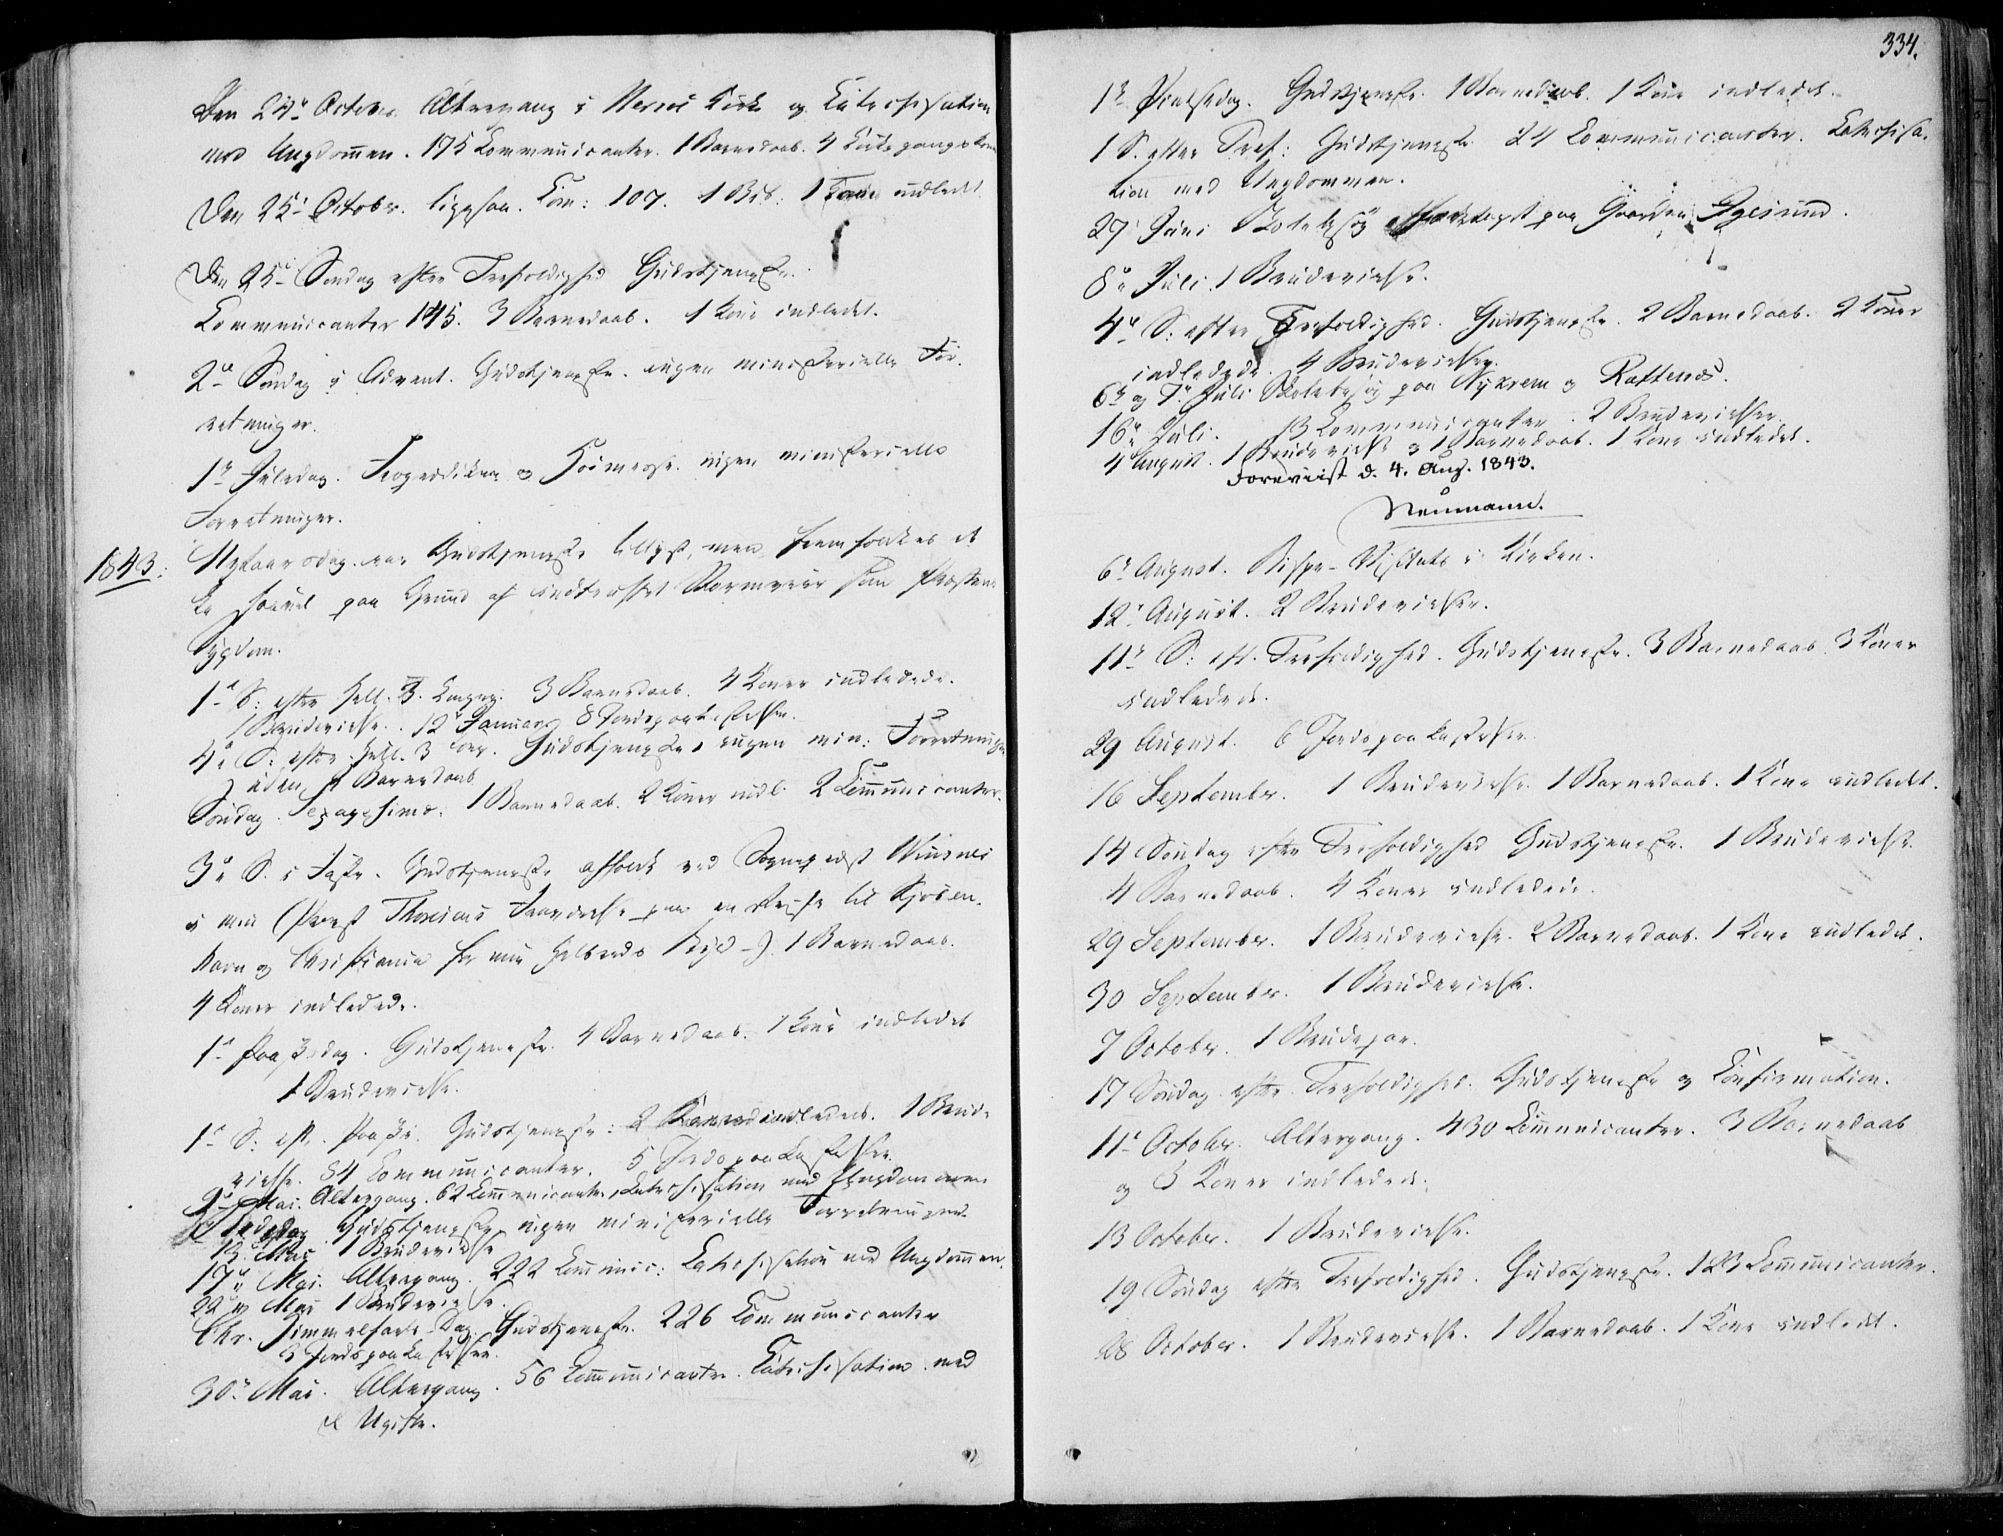 Den 24de October Altergang i Kirke og Catechisation
med Ungdommen. 175 Communicanter. 1 Barnedaab. 4
Den 25de Octobr. ligesaa. Com: 107. 1 Brd: 1 Kone indledet.
Den 25de Søndag efter Trefoldighed Gudstjeneste.
Communicanter 145. 3 Barnedaab. 1 Kone indledet.
2de Søndag i Advent. Gudstjeneste. ingen ministerielle For-
retninger.
1ste Juledag. Froprædiken og Høimesse. ingen ministerielle
Forretninger.
1843: Nytaarsdag var Gudstjeneste berammet, men
paa Grund af indtruffet Stormveir samt Præstens
Sygdom.
1ste S: efter Hell. 3 Konger: 3 Barnedaab. 4 Koner indledede.
1 Brudevielse. 12 Januar 8 Jordspaakastelser.
4de S: efter Hell. 3 Kong. Gudstjeneste, ingen min: Forretninger
uden 1 Barnedaab
Søndag Sexagesima. 1 Barnedaab. 2 Koner indl. 2 Communicanter.
3de S. i Faste. Gudstjeneste afholdt ved Sognepræst
i min (Præst Fraværelse paa en Reise til Kjøben-
havn og Christiania for min Helbreds Skyld). 1 Barnedaab.
4 Koner indledede.
1ste Paaskedag. Gudstjeneste. 4 Barnedaab. 1 Kone indledet
1 Brudevielse.
1ste S: eft. Paaske. Gudstjeneste: 2 Koner indledede. 1 Brude-
vielse. 84 Communicanter. 5 Jordspaakastelser.
9de Mai. Altergang. 62 Communicanter, Catechisation med Ungdommen
Bededag Gudstjeneste, ingen ministerielle Forretninger
13de Mai 1 Brudevielse
17de Mai. Altergang. 222 Communic: Catechisation med Ungdommen.
22de Mai 1 Brudevielse.
Chr. Himmelfarts-Dag. Gudstjeneste. 226 Communicanter
6 Jordspaakastelser.
30te Mai. Altergang. 56 Communicanter. Catechisation med
de Ugifte.
334.
1ste Pintsedag. Gudstjeneste. 1 Barnedaab. 1 Kone indledet.
1 S. efter Tref: Gudstjeneste 24 Communicanter. Catechisa-
tion med Ungdommen.
27 Juni Skolebesøg foretaget paa Gaarden Igesund.
8de Juli. 1 Brudevielse.
4de S: efter Trefoldighed. Gudstjeneste. 2 Barnedaab. 2 Koner
indledede. 4 Brudevielser.
6te og 7de Juli Skolebesøg paa Nykrem og Rattenes.
16de Juli. 13 Communicanter. 2 Brudevielser.
4 August. 1 Brudevielse og 1 Barnedaab. 1 Kone indledet.
Foreviist d. 4. Aug. 1843.
Neumann.
6te August. Bispe-Visitats i Kirken.
12te August. 2 Brudevielser.
11te S: eft. Trefoldighed. Gudstjeneste. 3 Barnedaab. 3 Koner
indledede.
29 August. 6 Jordspaakastelser.
16 September. 1 Brudevielse. 1 Barnedaab. 1 Kone indledet.
14 Søndag efter Trefoldighed Gudstjeneste. 1 Brudevielse.
4 Barnedaab. 4 Koner indledede.
29 September. 1 Brudevielse. 2 Barnedaab. 1 Kone indledet.
30 September. 1 Brudevielse.
7 October. 1 Brudepar.
17 Søndag efter Trefoldighed. Gudstjeneste og Confirmation.
11te October. Altergang. 430 Communicanter. 3 Barnedaab
og 3 Koner indledede.
13 October. 1 Brudevielse.
19 Søndag efter Trefoldighed. Gudstjeneste. Communicanter.
28 October. 1 Brudevielse. 1 Barnedaab. 1 Kone indledet.